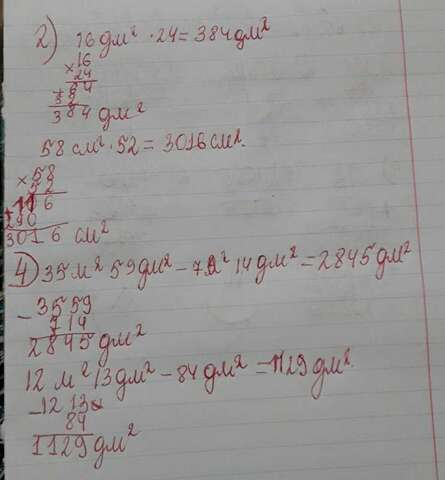 2) 16 дм² · 24 = 384 дм²
× 16
24
+ 64
32
384 дм²
58 см² · 52 = 3016 см².
× 58
52
116
+ 290
3016 см²
4) 35 м² 59 дм² – 7 м² 14 дм² = 2845 дм²
– 3559
714
2845 дм²
12 м² 13 дм² – 84 дм² = 1129 дм².
– 1213
84
1129 дм²